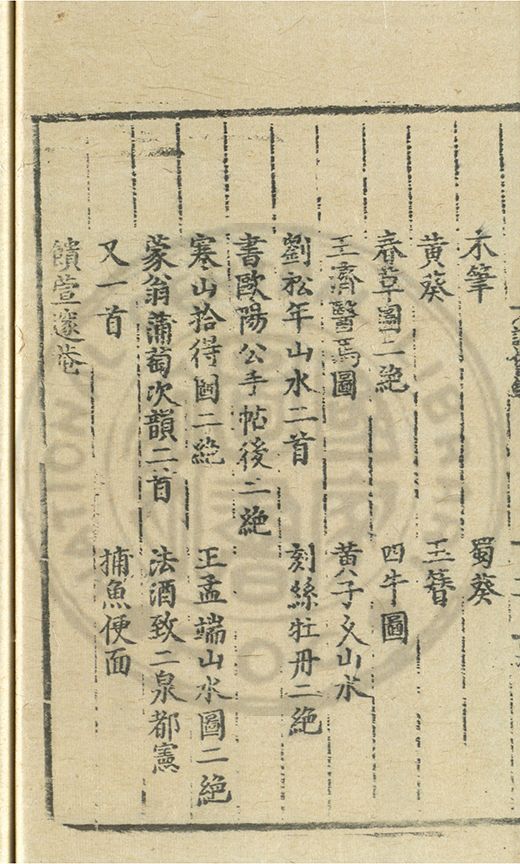 木筆
蜀葵
黃葵
玉簪
春草圖二絶
四牛圖
王濟醫馬圖
黃子久山水
劉松年山水二首
刻絲牡丹二絶
書歐陽公手帖後二絶
寒山拾得圖二絶
王孟端山水圖二絶
蒙翁蒲萄次韻二首
法酒致二泉都憲
又一首
捕魚便面
饋萱邃菴